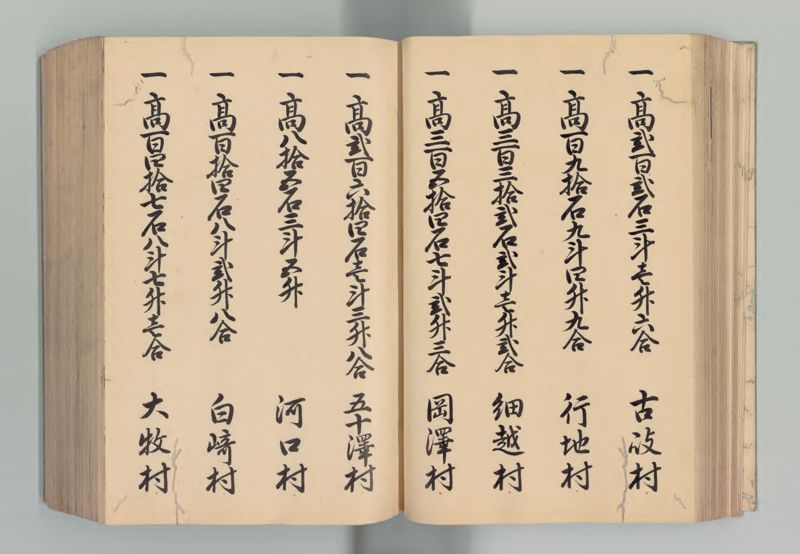 一 高弐百弐石三斗壱升六合 古政村
一 高百九拾石九斗四升九合 行地村
一 高三百三拾弐石弐斗壱升弐合 細越村
一 高三百五拾四石七斗弐升三合 岡澤村
一 高弐百六拾四石壱斗三升八合 五十澤村
一 高八拾五石三斗五升 河口村
一 高百拾四石八斗弐升八合 白﨑村
一 高百四拾七石八斗七升壱合 大牧村